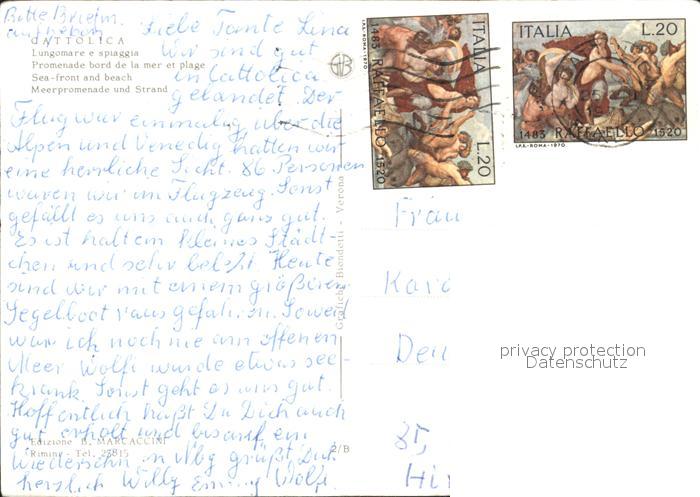 Bitte Briefm.
aufheben
CATTOLICA
Lungomare e spiaggia
Promenade bord de la mer et plage
Sea-front and beach
Meerpromenade und Strand
Liebe Tante Lina
Wir sind gut
in Cattolica
gelandet. Der
Flug war einmalig über die
Alpen und Venedig hatten wir
eine herrliche Sicht. 86 Personen
waren wir im Flugzeug. Sonst
gefällt es uns auch ganz gut.
Es ist halt ein kleines Städt-
chen und sehr belebt. Heute
sind wir mit einem größeren
Segelboot raus gefahren. Soweit
war ich noch nie am offenen
Meer Wolfi wurde etwas see-
krank. Sonst geht es uns gut.
Hoffentlich hast Du Dich auch
gut erholt und bis auf ein
Wiedersehn in Nbg grüßt Dich
herzlich Willy Emmy Wolfi.
Edizione B. MARCACCINI
Rimini - Tel. 23815
2/B
Grafiche Biondetti - Verona
ITALIA L.20
1483 RAFFAELLO 1520
I.P.S.-ROMA-1970
ITALIA L.20
1483 RAFFAELLO 1520
I.P.S.-ROMA-1970
Frau
85,
privacy protection
Datenschutz